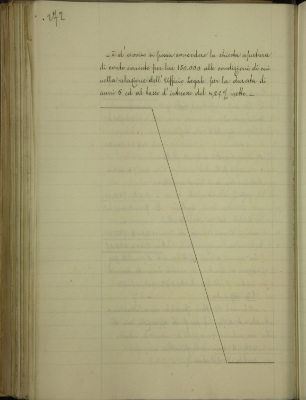 272
è d'avviso si possa concedere la chiesta apertura
di conto corrente per lire 150.000 alle condizioni di cui
nella relazione dell'Ufficio Legale per la durata di
anni 5 ed al tasso d'interesse del 4,25% netto. —